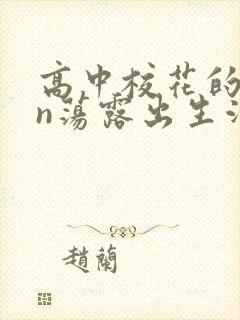 高中校花的
n荡露出生活
赵蘭